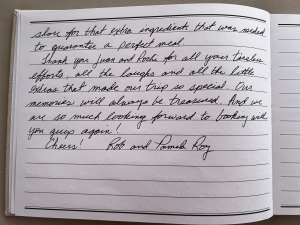 store for that extra ingredient that was needed
to guarantee a perfect meal.
Thank you Juan and for all your tireless
efforts, all the laughs and all the little
extras that made our trip so special. Our
memories will always be treasured. And we
are so much looking forward to booking with
you guys again!
Cheers! Rob and Pamela Roy